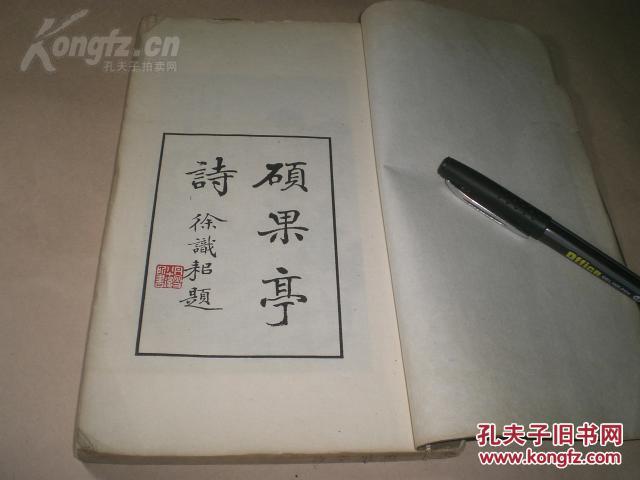 Kongfz.cn
孔夫子拍卖网
碩果亭
詩
徐識耜題
Office
孔夫子旧书网
www.kongfz.com